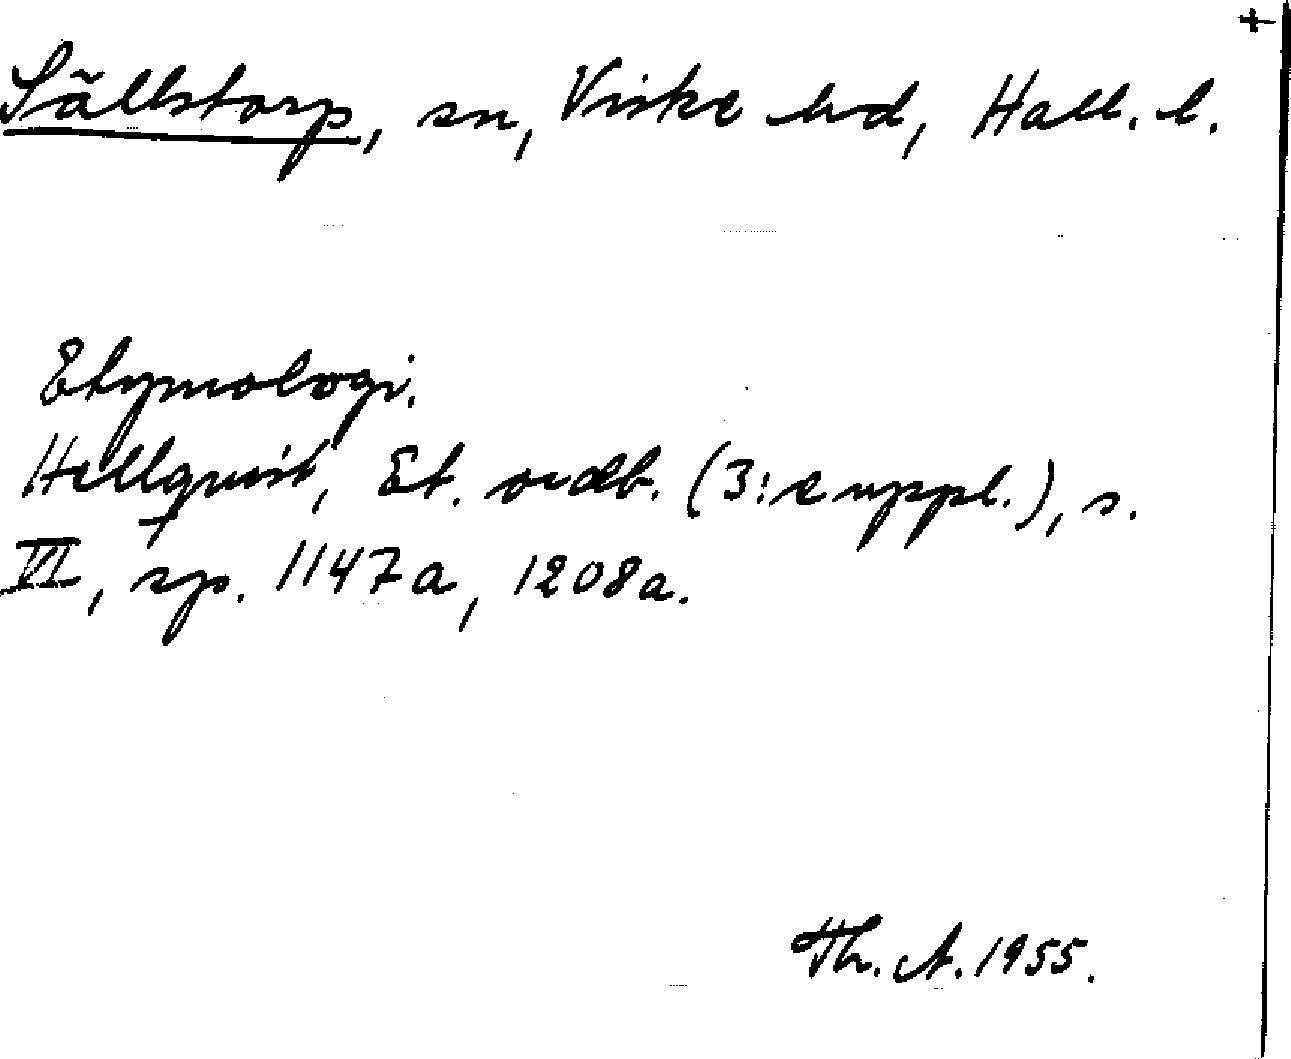 +
Sällstorp, sn, Viske hd, Hall. l.
Etymologi.
Hellquist, Et. ordb. (3:e uppl.), s.
VI, sp. 1147a, 1208a.
Th. A. 1955.